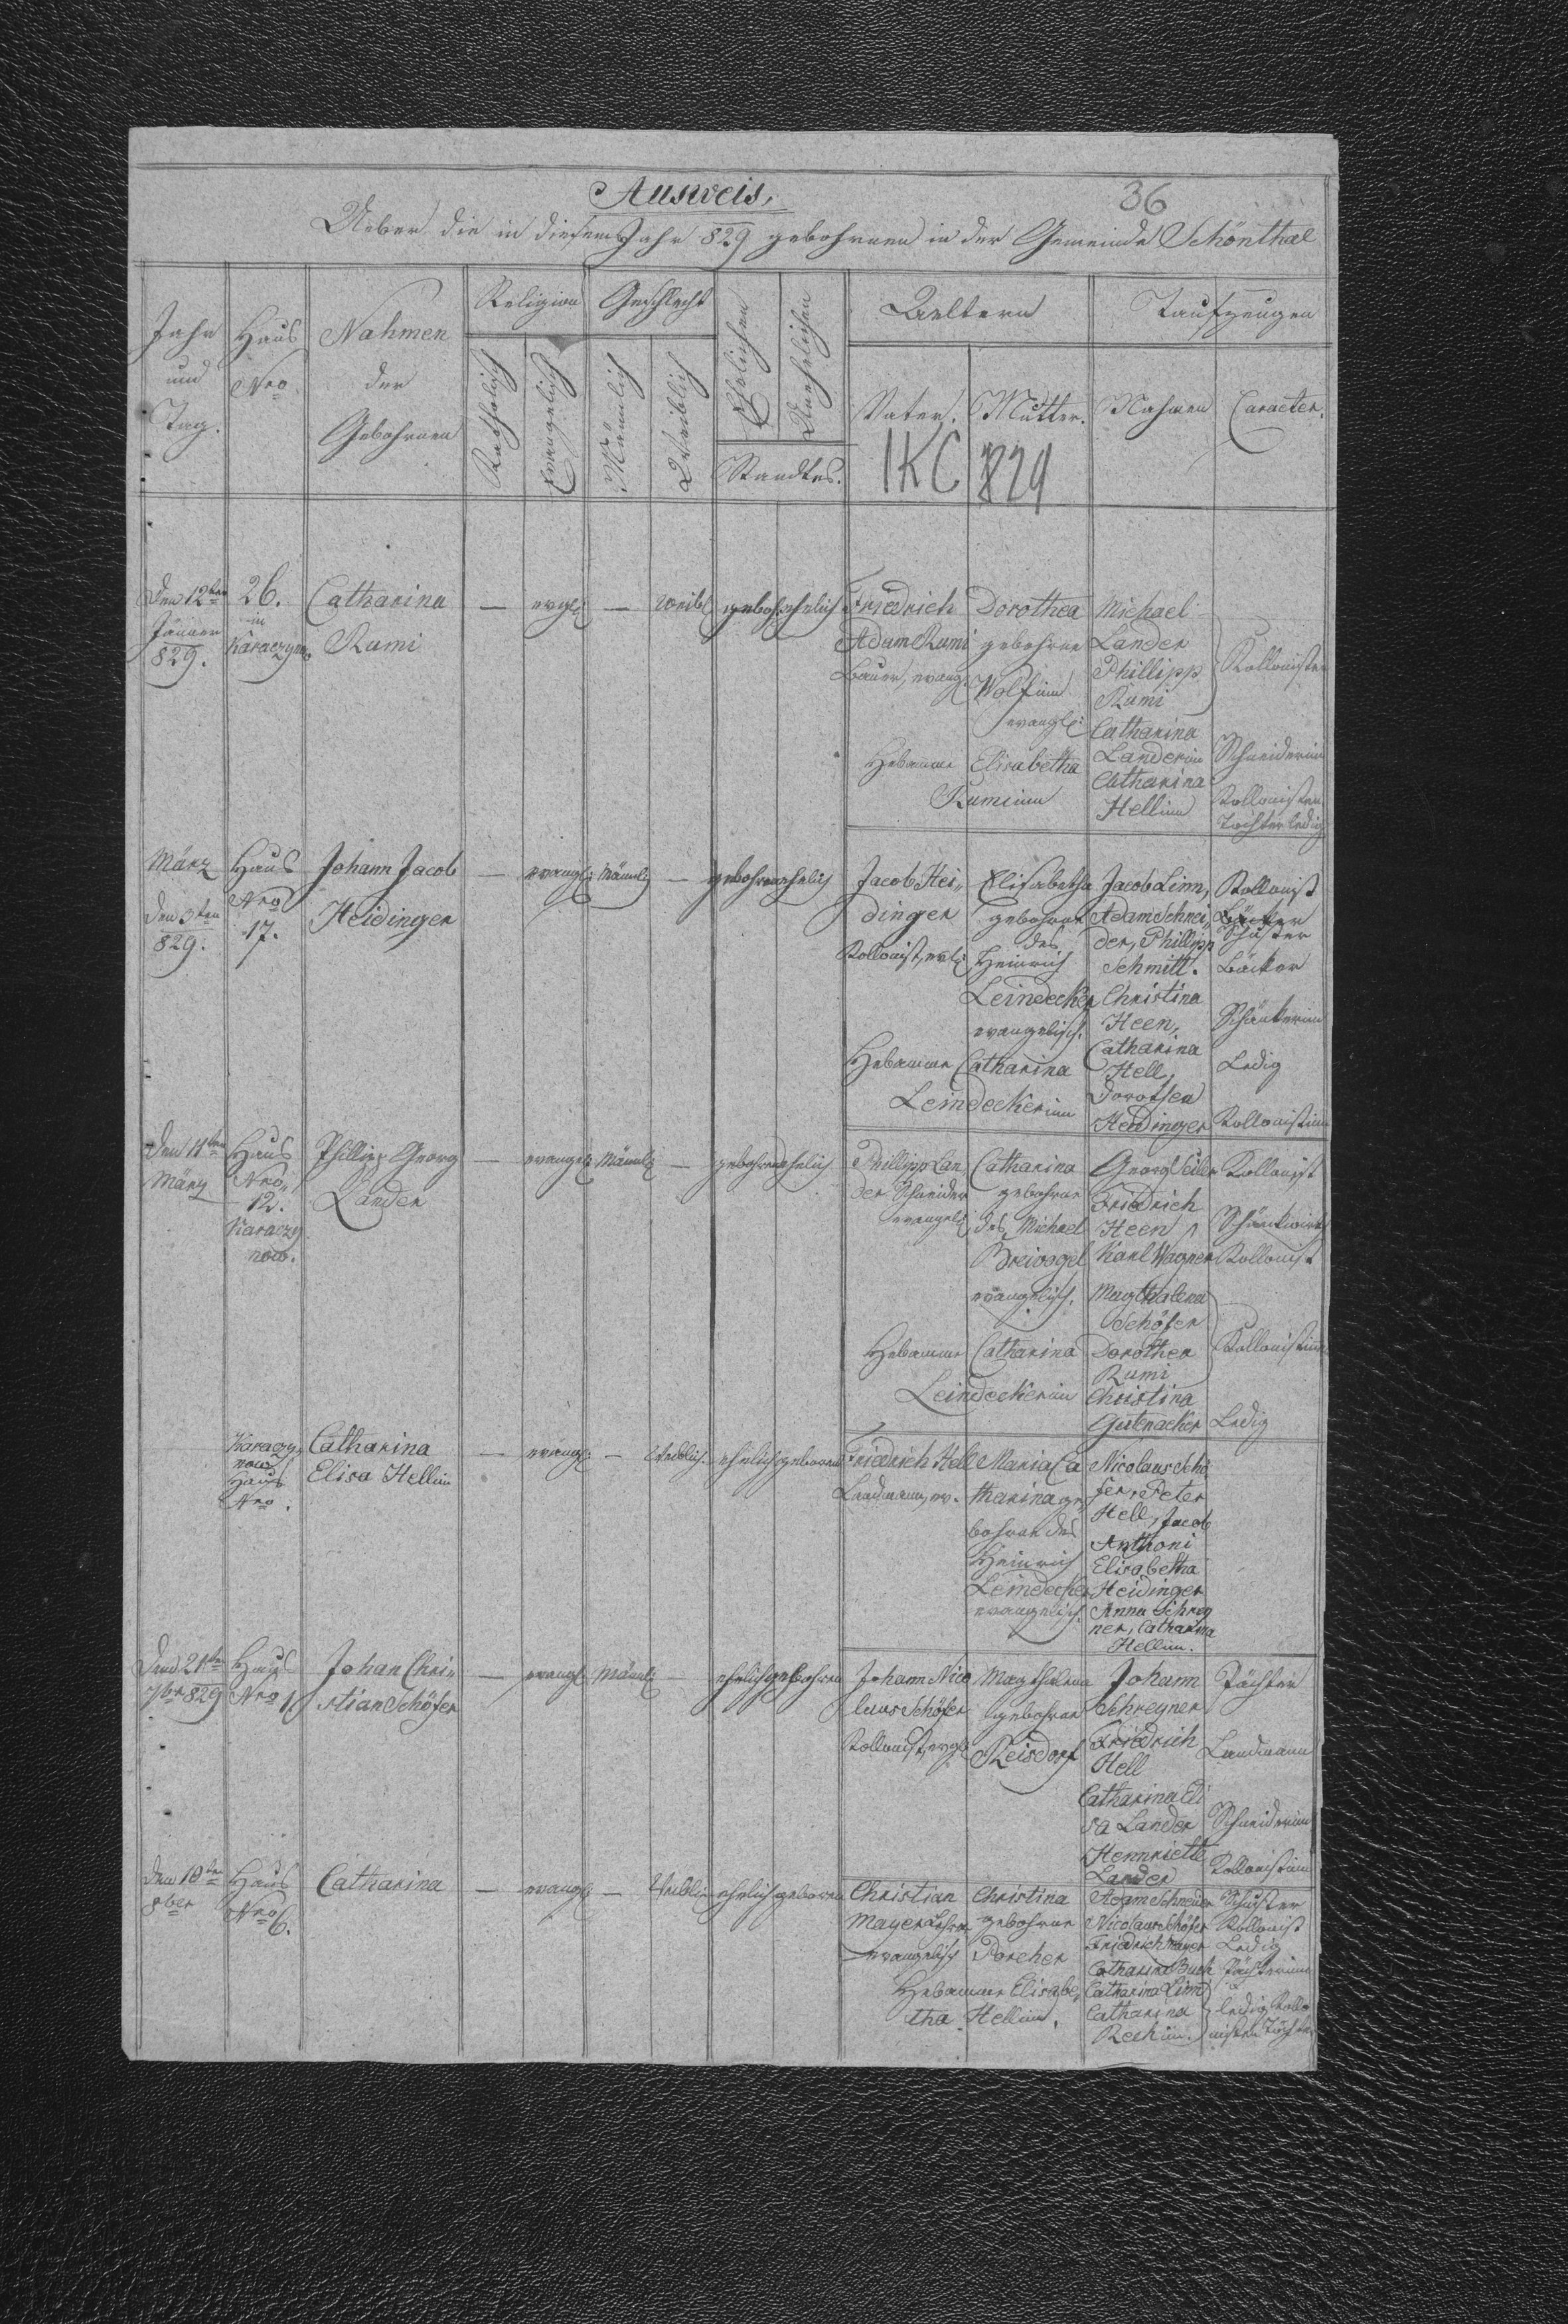 Ausweis,
36
Ueber die in diesem Jahr 829 gebohrnen in der Gemeinde Schönthal
Jahr und Tag.
Haus Nro.
Nahmen der Gebohrnen
Religion
Katholisch
Evangelisch
Geschlecht
Mänlich
Weiblich
Ehelichen
Unehelichen
Standtes.
Aeltern
Vater.
Mutter.
Taufzeugen
Nahmen
Caracter.
1KC 829
Den 12ten
Jänner
829.
26.
in
Karaczynow
Catharina
Rumi
—
evgl:
—
weibl
geboh: ehelich
Friedrich
Adam Rumi
Bauer, evang:
Dorothea
gebohrne
Wolfinn
evangl:
Hebamme Elisabetha
Rumiinn
Michael
Lander
Phillipp
Rumi
Kollonisten
Catharina
Landerinn
Schneiderinn
Catharina
Hellinn
Kollonisten
Tochter ledig
März
Den 3ten
829.
Haus
Nro
17.
Johann Jacob
Heidinger
—
evangl:
Mänlich
—
gebohren ehelich
Jacob Hei„
dinger
Kollonist, evl:
Elisabetha
gebohrne
des
Heinrich
Leindecker
evangelisch.
Hebamme Catharina
Leindeckerinn
Jacob Linn,
Adam Schnei„
der, Phillipp
Schmitt.
Christina
Heen,
Catharina
Hell,
Dorothea
Heidinger
Kollonist
Schuster
Bäcker
Schänkerinn
Ledig
Kollonistinn
Den 11ten
März
Haus
Nro
12.
Karaczy
now.
Phillipp Georg
Lander
—
evangel:
Mänlich
—
gebohren ehelich
Phillipp Lan
der Schneider
evangel:
Catharina
gebohrne
des Michael
Breivogel
evangelisch.
Hebamme Catharina
Leindeckerinn
Georg Seiler
Friedrich
Heen
Karl Wagner
Magthalena
Schöfer
Dorothea
Rumi
Christina
Gutenacker
Kollonist
Schänkwirth
Kollonist
Kollonistinn
Ledig
Karaczy„
now
Haus
Nro.
Catharina
Elisa Hellinn
—
evangl:
—
Weiblich.
ehelich geboren
Friedrich Hell
Landmann, ev.
Maria Ca
tharina ge„
bohrne des
Heinrich
Leindecker
evangelisch.
Nicolaus Schö
fer, Peter
Hell, Jacob
Anthoni
Elisabetha
Heidinger
Anna Schrey
ner, Catharina
Hellinn.
Den 21ten
7br 829
Haus
Nro 1.
Johan Chri„
stian Schöfer
—
evangl
Mänl:
—
ehelich gebohren
Johann Nico
laus Schöfer
Kollonist, evgl:
Magthalena
gebohrne
Reisdorf
Johann
Schreyner
Friedrich
Hell
Catharina Eli
sa Lander
Hennriette
Lander
Pächter
Landmann
Schneiderinn
Kollonistinn
Den 10ten
8ber
Haus
Nro 6.
Catharina
—
evangl:
—
Weiblich
ehelich geboren
Christian
Mayer Lehrer
evangelisch
Christina
gebohrne
Porcher
Hebamme Elisabe„
tha Hellinn.
Adam Schneider
Nicolaus Schöfer
Friedrich Mayer
Catharina Buch
Catharina Linn
Catharina
Rechinn.
Schuster
Kollonist
Ledig
Pächterinn
ledig Kollo
nisten Töchter